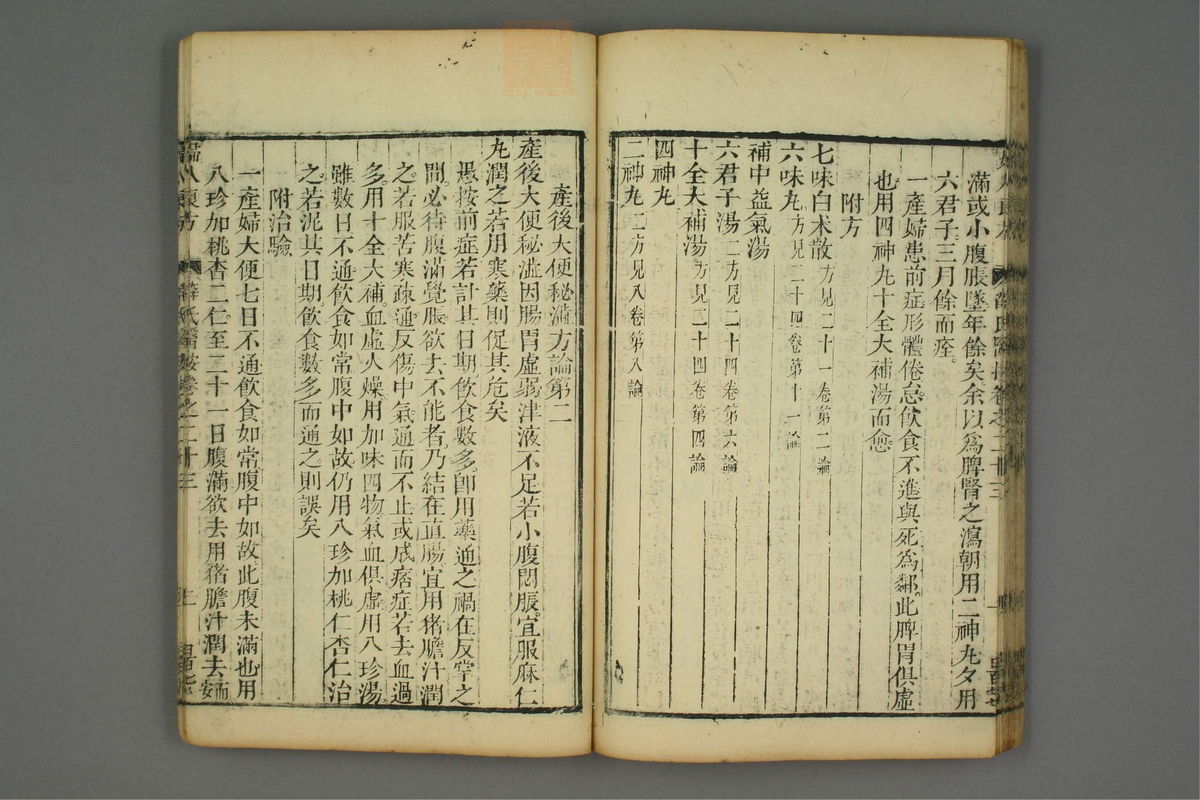 滿或小腹脹墜年餘矣余以爲脾腎之瀉朝用二神丸夕用
六君子三月餘而痊。
一產婦患前症形體倦怠。飲食不進與死爲鄰。此脾胃俱虛
也用四神丸十全大補湯而愈
附方
七味白术散方見二十一卷第二論
六味丸方見二十四卷第十一論
補中益氣湯
六君子湯二方見二十四卷第六論
十全大補湯方見二十四卷第四論
四神丸
二神丸二方見八卷第八論
產後大便秘澁方論第二
產後大便秘澁因腸胃虛弱津液不足若小腹悶脹。宜服麻仁
丸潤之若用寒藥則促其危矣
愚按前症若計其日期飲食數多。卽用藥通之禍在反掌之
間。必待腹滿覺脹欲去不能者乃結在直腸宜用猪膽汁潤
之。若服苦寒疎通反傷中氣。通而不止或成痞症若去血過
多。用十全大補。血虛火燥。用加味四物氣血俱虛。用八珍湯。
雖數日不通飲食如常腹中如故仍用八珍加桃仁杏仁治
之若泥其日期。飲食數多而通之則誤矣
附治驗
一產婦大便七日不通飲食如常腹中如故。此腹未滿也用
八珍加桃杏二仁。至二十一日腹滿欲去用猪膽汁潤去而安
良方
薛氏醫按卷之二十三
二